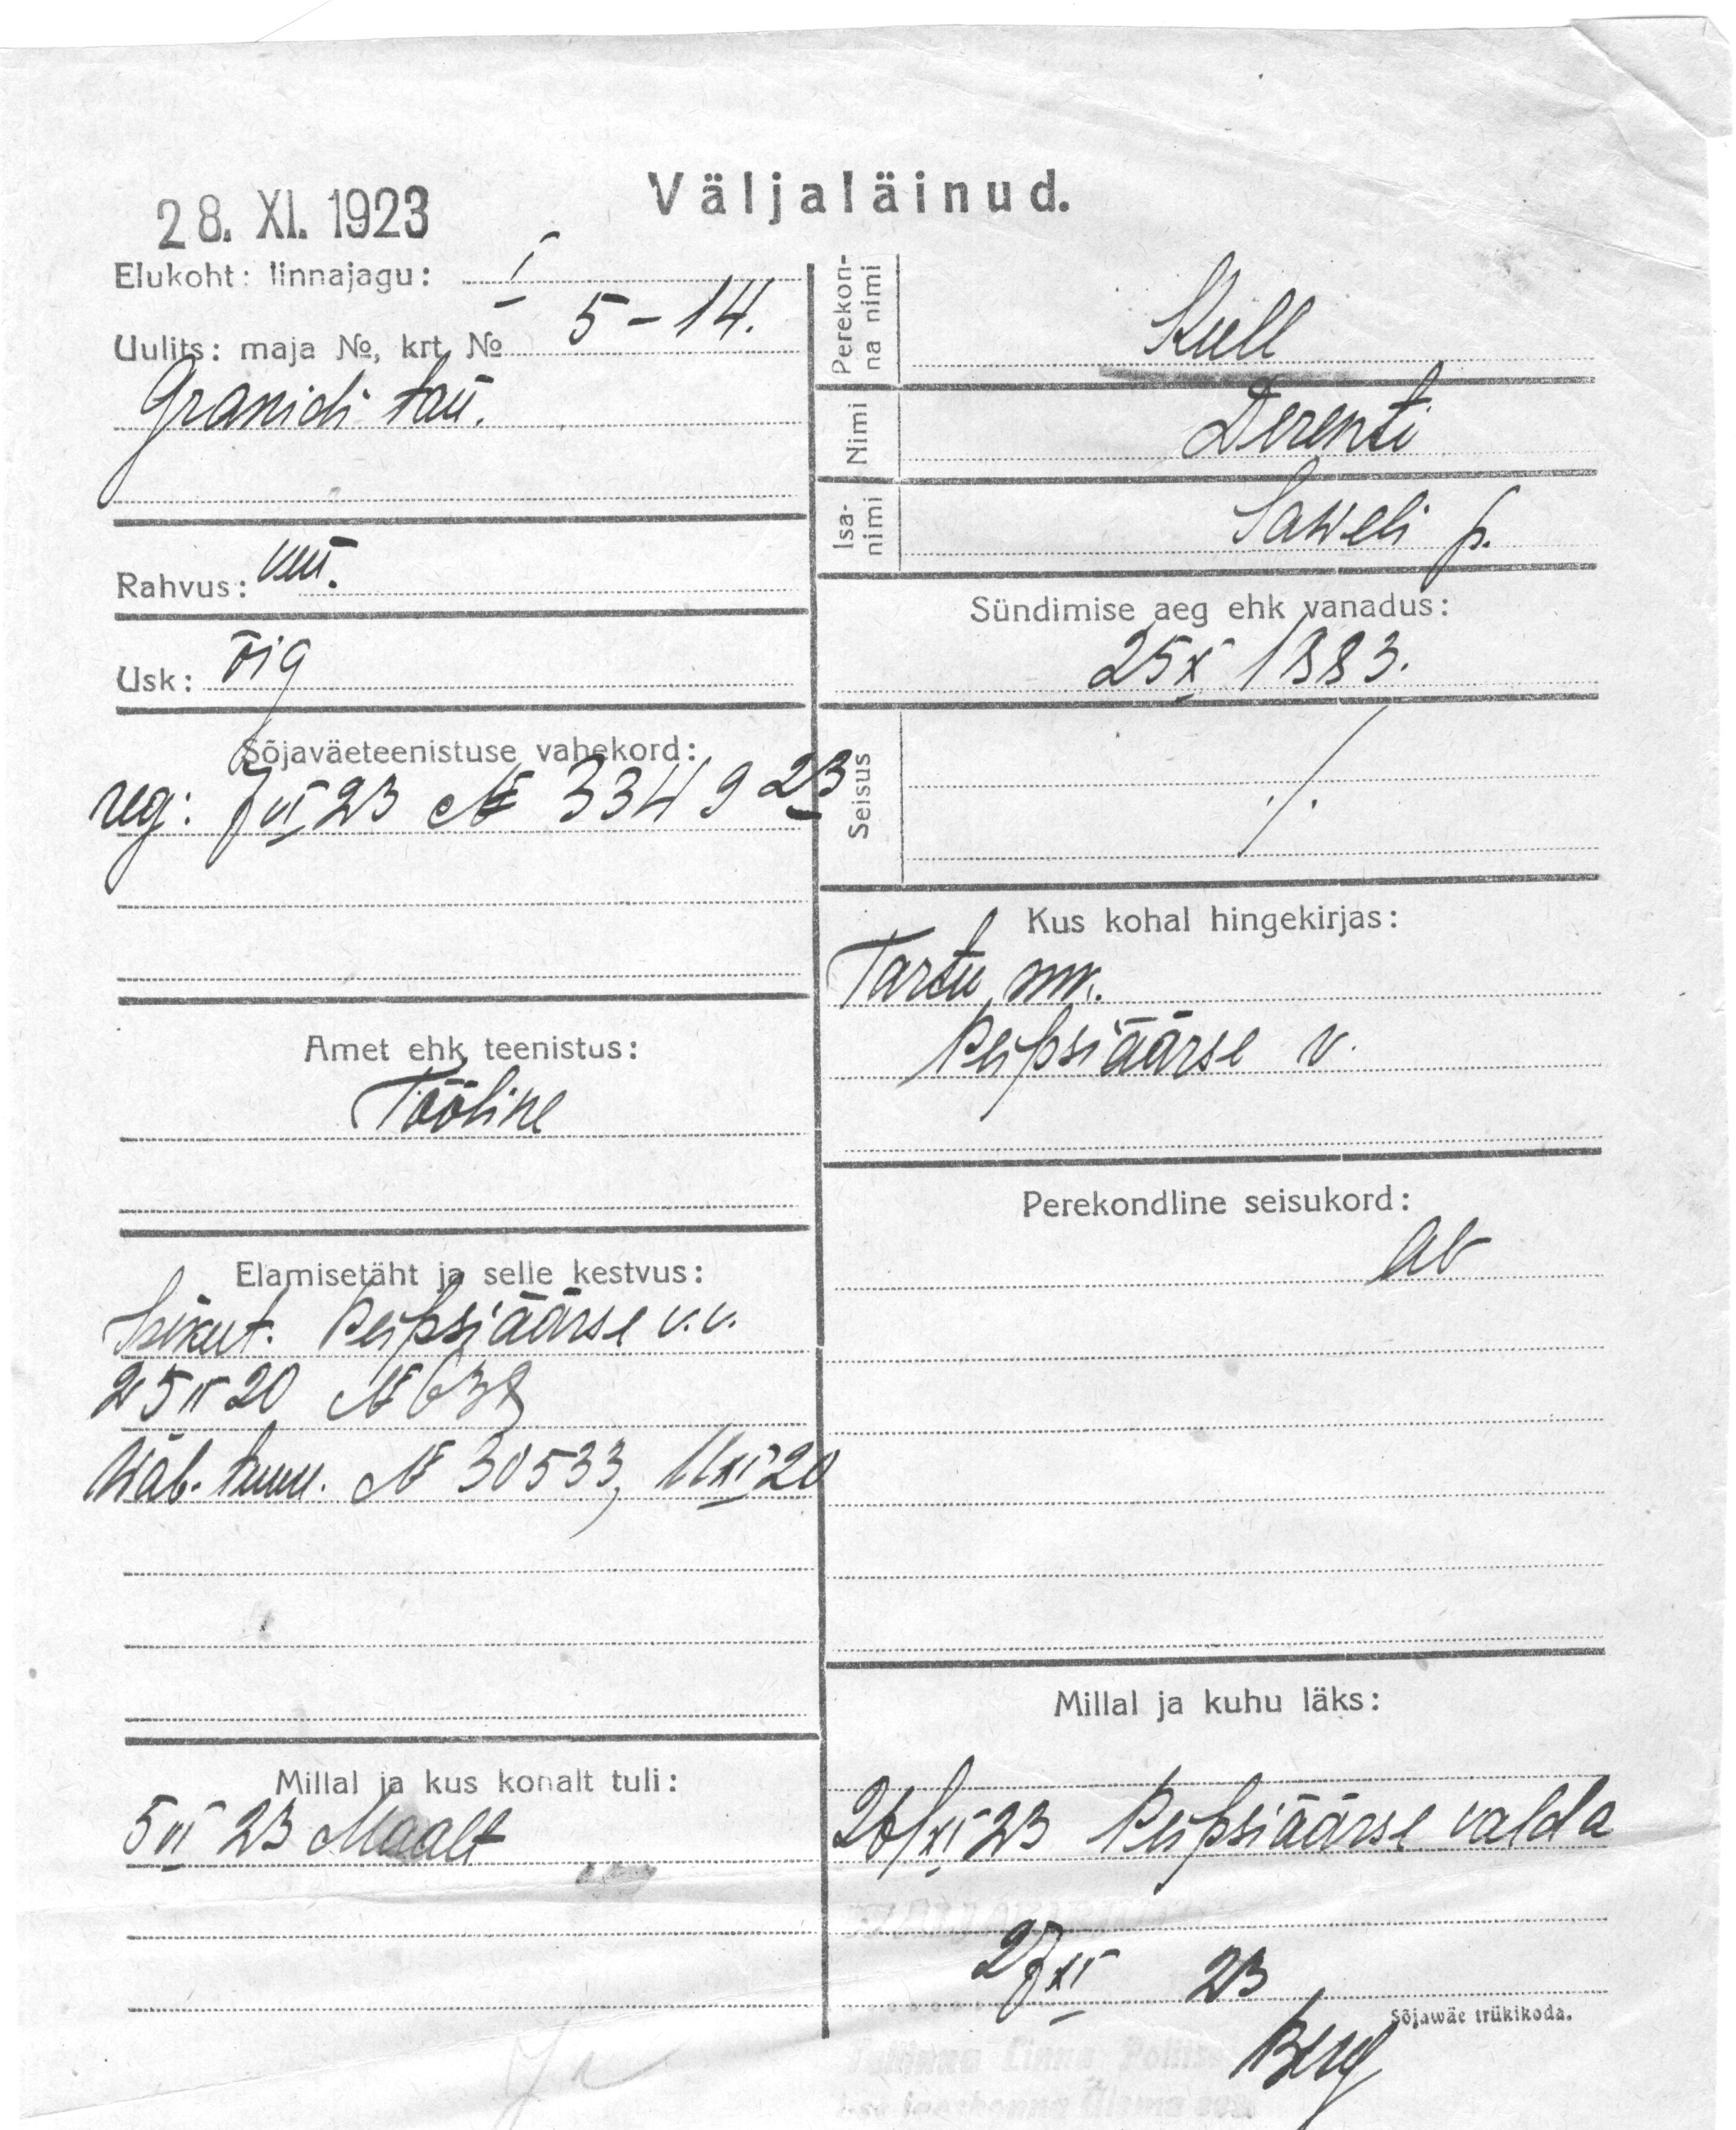 28. XI. 1923
Väljaläinud.
Elukoht: linnajagu: I
Uulits: maja №, krt. № 5-14.
Granidi tän.
Rahvus: ven.
Usk: õig
Sõjaväeteenistuse vahekord:
reg: 7 VI 23 № 3349 23
Amet ehk teenistus:
Tööline
Elamisetäht ja selle kestvus:
Isikut. Peipsiäärse v.v.
25 II 20 № 638
Wab. tunn. № 30533, 11 XI 20
Millal ja kus kohalt tuli:
5 VI 23 Maalt
Perekon-
na nimi
Kull
Nimi Derenti
Isa-
nimi
Saweli p.
Sündimise aeg ehk vanadus:
25 X 1883.
Seisus ./.
Kus kohal hingekirjas:
Tartu mk.
Peipsiäärse v.
Perekondline seisukord:
ab
Millal ja kuhu läks:
26/XI 23 Peipsiäärse valda
27 XI 23
Sõjawäe trükikoda.
Berg
Tallinna Linna Politse